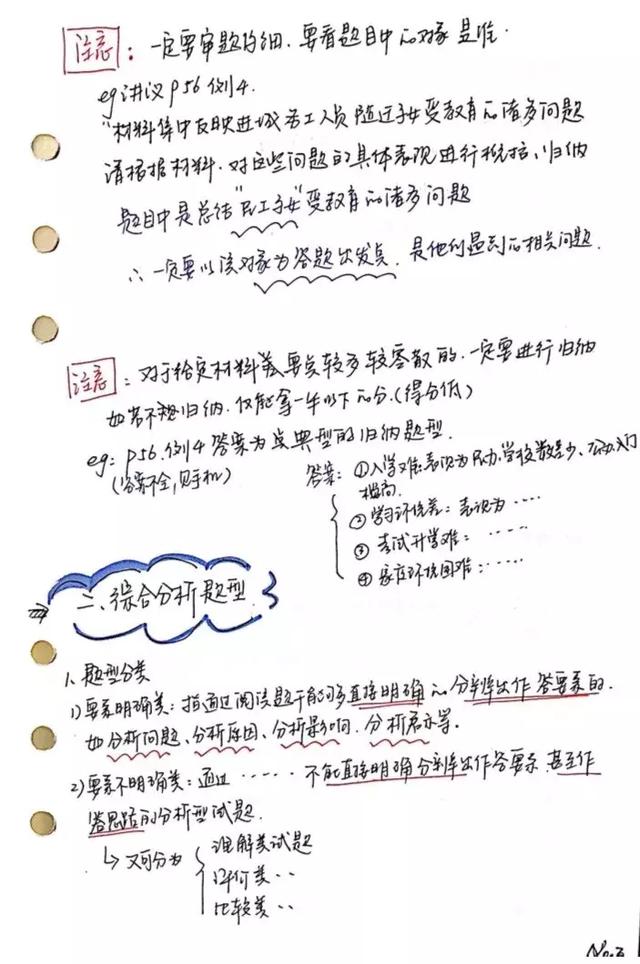 注意：一定要审题仔细．要看题目中的对象是谁．
eg讲议P56例4.
"材料集中反映进城务工人员随迁子女受教育的诸多问题
请根据材料．对这些问题的具体表现进行概括、归纳
题目中是总结"民工子女"受教育的诸多问题
∴一定要以该对象为答题出发点．是他们遇到的相关问题．
注意：对于给定材料类要点较多较零散的．一定要进行归纳
如若不想归纳．仅能拿一半以下的分．(得分低)
eg：P56．例4答案为点典型的归纳题型．
(答案不全,见手机)
答案：①入学难：表现为民办学校数量少、公办入门
槛高．
②学习环境差：表现为……
③考试升学难：……
④家庭环境困难：……
二、综合分析题型
1、题型分类
1)要素明确类：指通过阅读题干能够直接明确的分辨出作答要素的．
如分析问题、分析原因、分析影响．分析启示等．
2)要素不明确类：通过……不能直接明确分辨出作答要素．甚至作
答思路的分析型试题．
↳又可分为
理解类试题
评价类··
比较类··
No.3